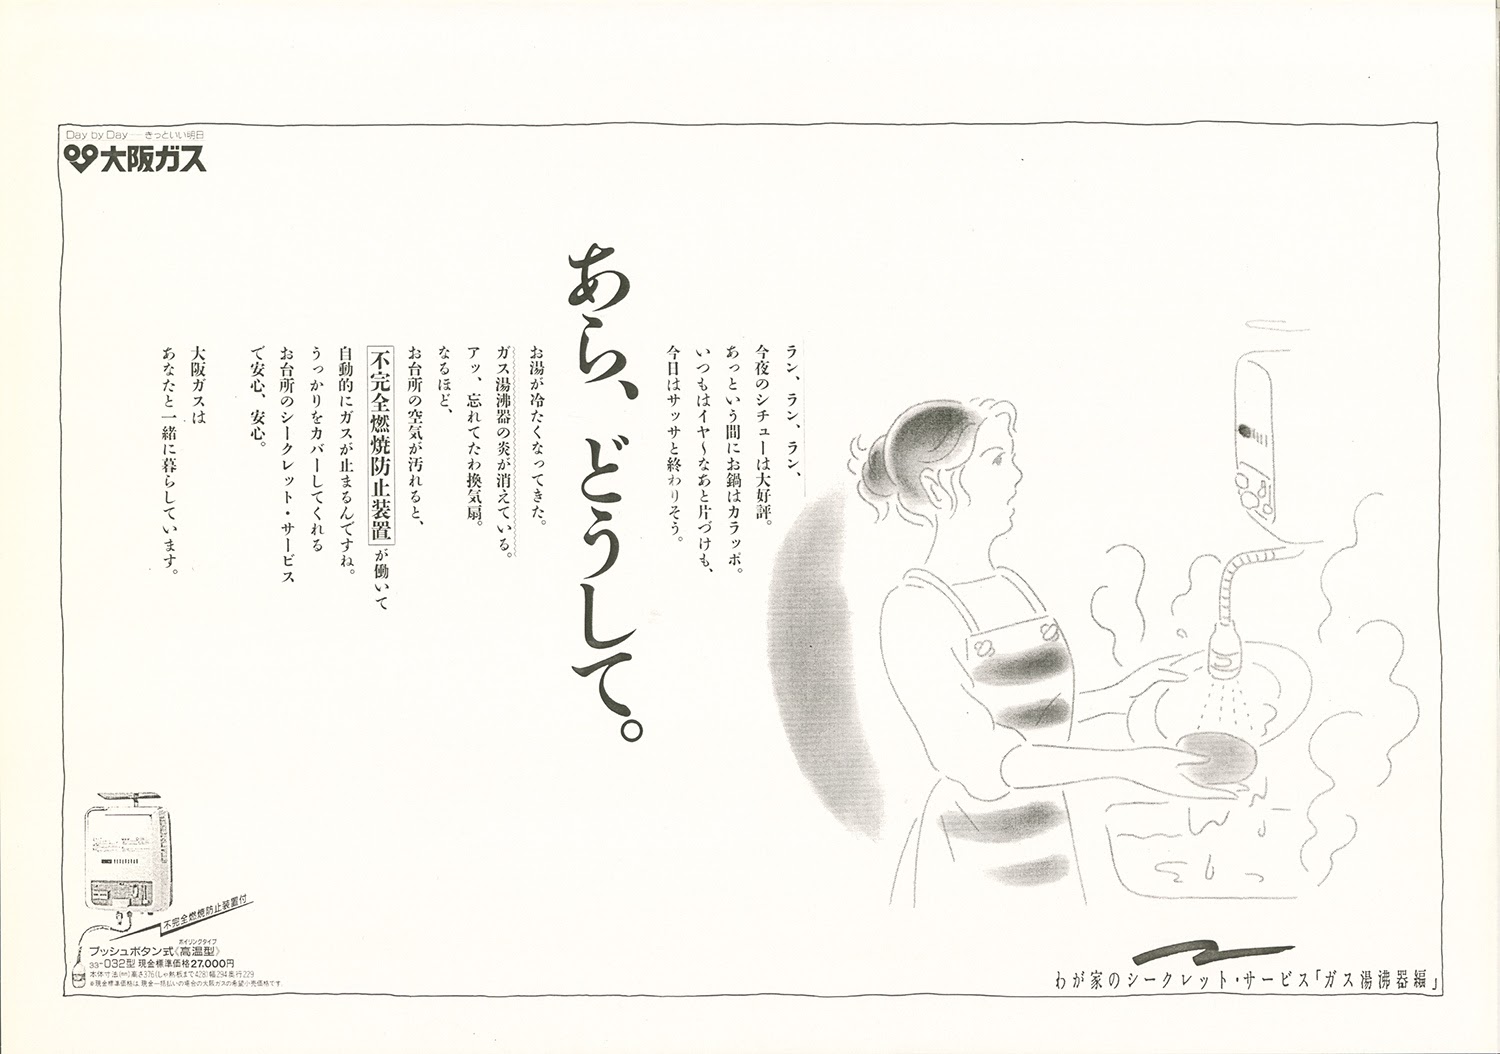 Day by Day―きっといい明日
大阪ガス
ラン、ラン、ラン、
今夜のシチューは大好評。
あっという間にお鍋はカラッポ。
いつもはイヤ〜なあと片づけも、
今日はサッサと終わりそう。
あら、どうして。
お湯が冷たくなってきた。
ガス湯沸器の炎が消えている。
アッ、忘れてたわ換気扇。
なるほど、
お台所の空気が汚れると、
不完全燃焼防止装置が働いて
自動的にガスが止まるんですね。
うっかりをカバーしてくれる
お台所のシークレット・サービス
で安心、安心。
大阪ガスは
あなたと一緒に暮らしています。
不完全燃焼防止装置付
ボイリングタイプ
プッシュボタン式《高温型》
33-032型 現金標準価格27,000円
本体寸法(㎜)高さ376(しゃ熱板まで428)幅294奥行229
※現金標準価格は、現金一括払いの場合の大阪ガスの希望小売価格です。
わが家のシークレット・サービス「ガス湯沸器編」